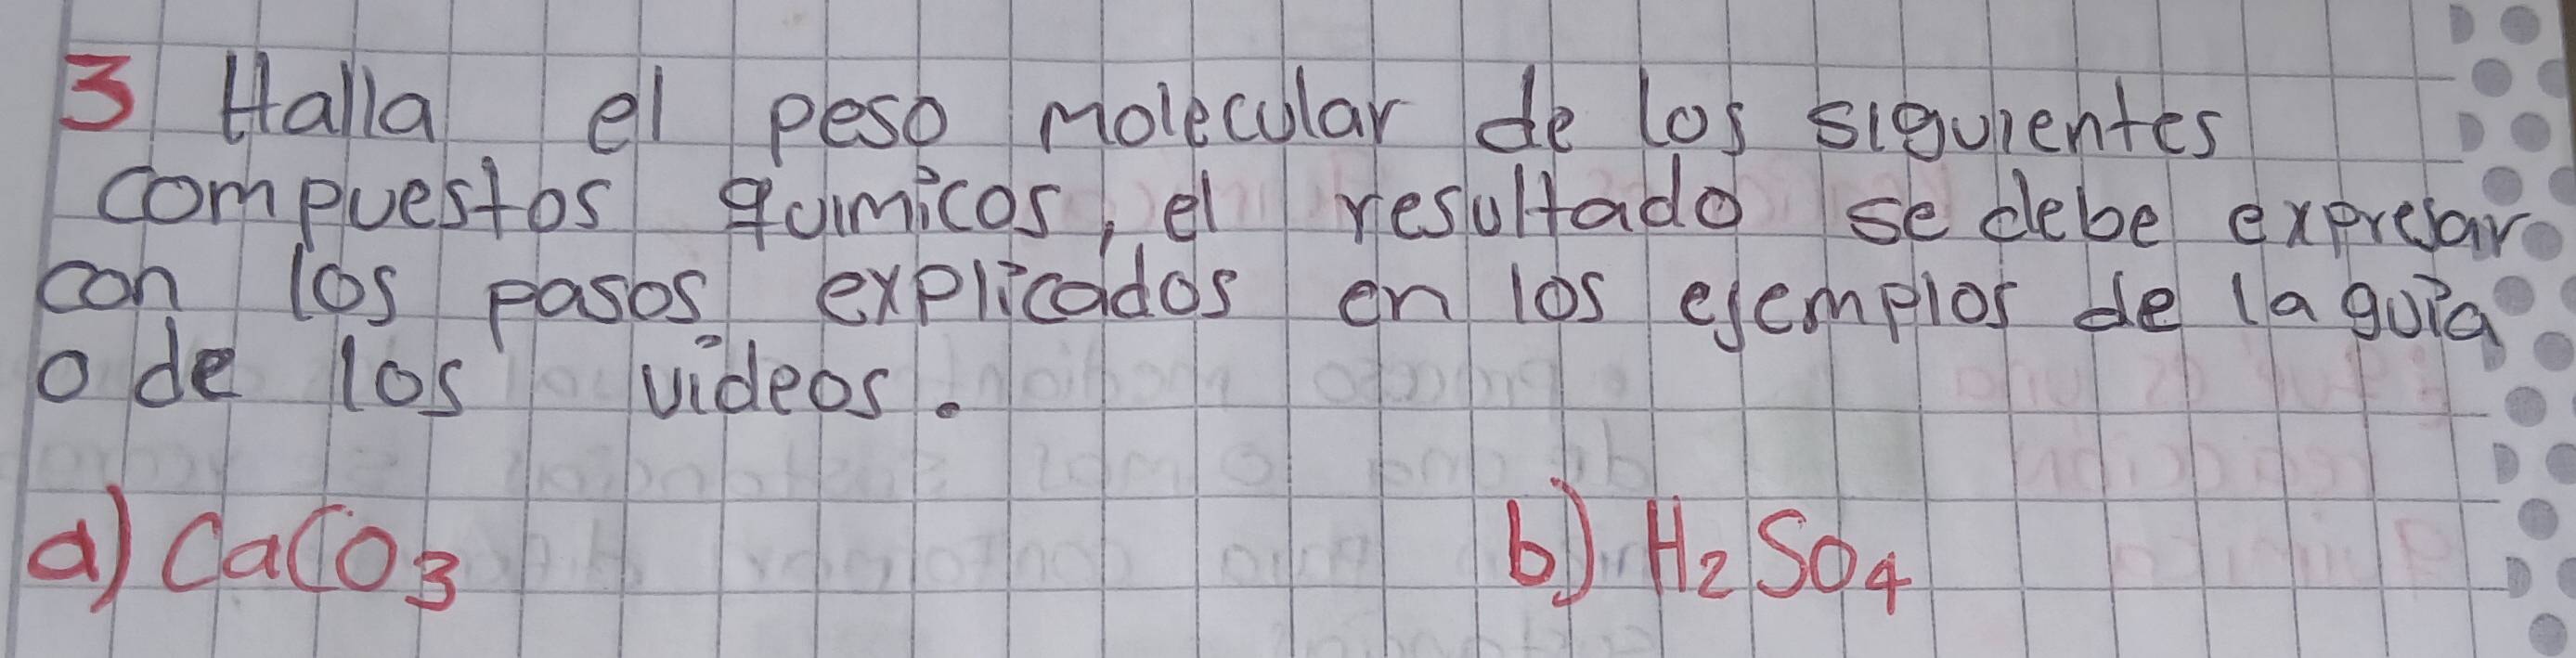 3 Halla el peso molecular de los siguientes
compuestos químicos, el resultado se debe expresar
con los pasos explicados en los ejemplos de la guía
o de los vídeos.
a) CaCO₃ b) H₂SO₄